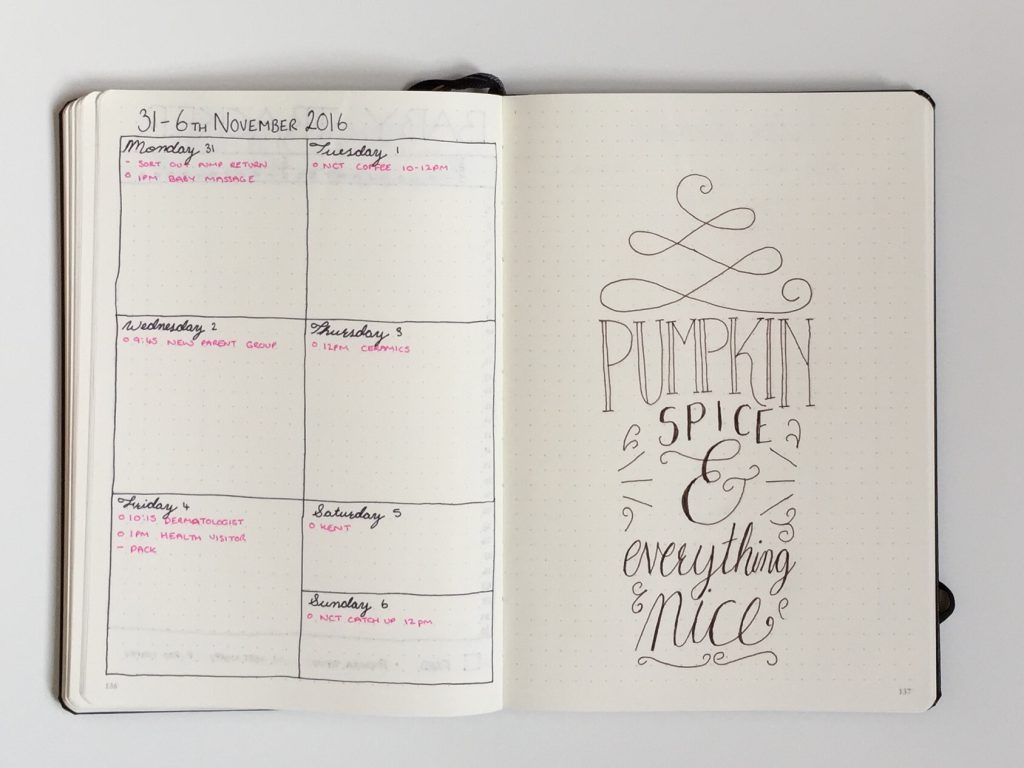 31-6TH NOVEMBER 2016
Monday 31
- SORT OUT PUMP RETURN
o 1PM BABY MASSAGE
Tuesday 1
o NCT COFFEE 10-12PM
Wednesday 2
o 9:45 NEW PARENT GROUP
Thursday 3
o 12PM CERAMICS
Friday 4
o 10:15 DERMATOLOGIST
o 1PM HEALTH VISITOR
- PACK
Saturday 5
o KENT
Sunday 6
o NCT CATCH UP 12PM
136
PUMPKIN
SPICE
&
everything
nice
137